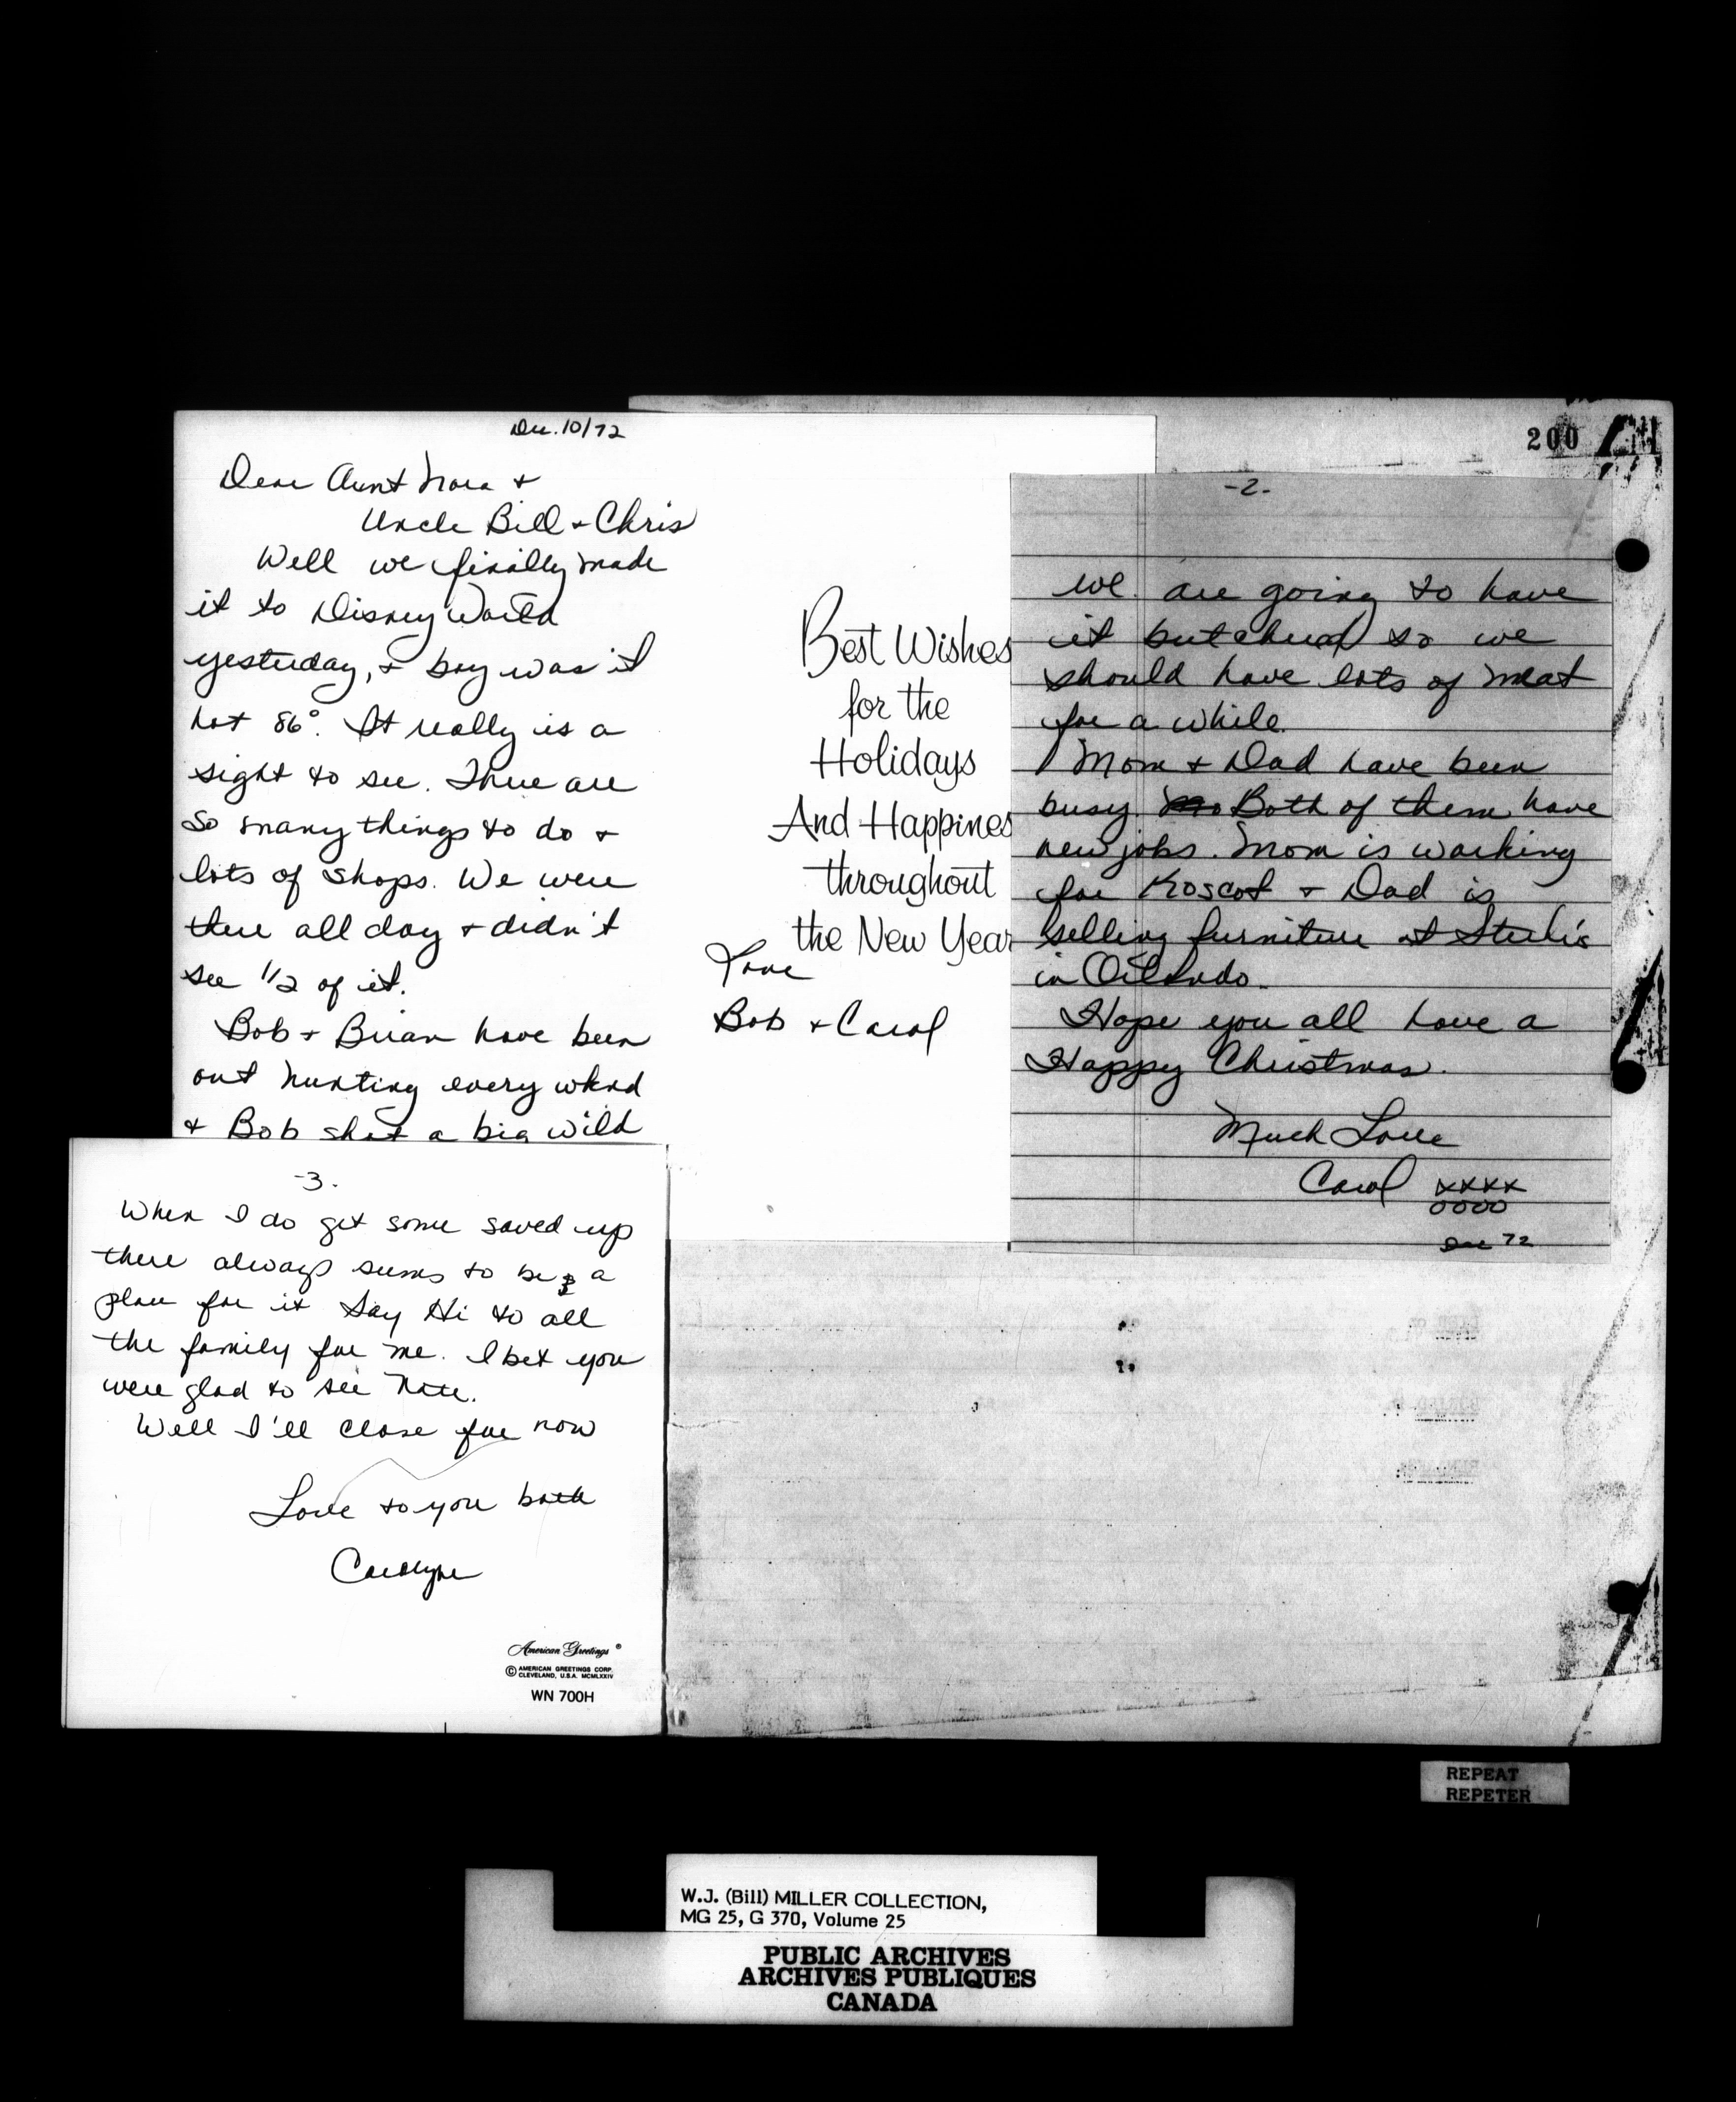 200
Dec. 10/72
Dear Aunt Nora +
Uncle Bill + Chris
Well we finally made
it to Disney World
yesterday, + boy was it
hot 86°. It really is a
sight to see. There are
so many things to do +
lots of shops. We were
there all day + didn't
see 1/2 of it.
Bob + Brian have been
out hunting every wknd
+ Bob shot a big wild
Best Wishes
for the
Holidays
And Happines
throughout
the New Year
Love
Bob + Carol
-2-
we are going to have
it butchered so we
should have lots of meat
for a while.
Mom + Dad have been
busy. Both of them have
new jobs. Mom is working
for Koscot + Dad is
selling furniture at
in Orlando.
Hope you all have a
Happy Christmas.
Much Love
Carol xxxx
oooo
Dec 72
-3-
When I do get some saved up
there always seems to be a
place for it Say Hi to all
the family for me. I bet you
were glad to see Nate.
Well I'll close for now
Love to you both
Carolyne
American Greetings ®
© AMERICAN GREETINGS CORP.
CLEVELAND, U.S.A. MCMLXXIV
WN 700H
REPEAT
REPETER
W.J. (Bill) MILLER COLLECTION,
MG 25, G 370, Volume 25
PUBLIC ARCHIVES
ARCHIVES PUBLIQUES
CANADA